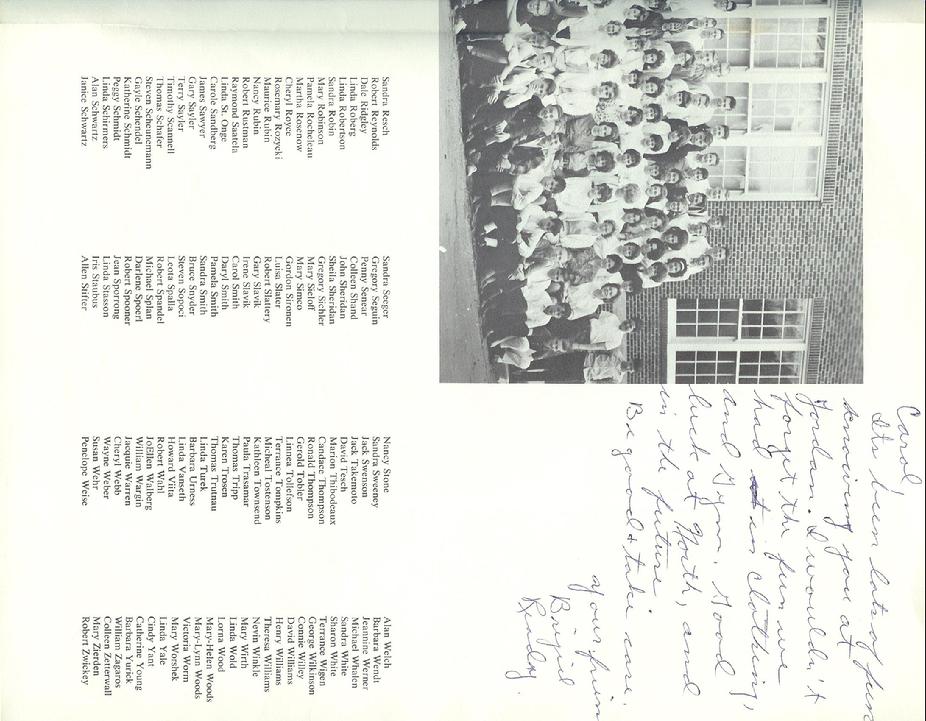 Sandra Resch
Robert Reynolds
Dale Ridgley
Linda Roberg
Linda Robertson
Sandra Robin
Mary Robinson
Pamela Rocheleau
Martha Rosenow
Cheryl Royce
Rosemary Rozycki
Maurice Rubin
Nancy Rubin
Robert Rustman
Raymond Saatela
Linda St. Onge
Carole Sandberg
James Sawyer
Gary Sayler
Terry Sayler
Timothy Scannell
Thomas Schafer
Steven Scheunemann
Gayle Schendel
Katherine Schmidt
Peggy Schmidt
Linda Schirmers
Alan Schwartz
Janice Schwartz
Sandra Seeger
Gregory Seguin
Penny Senear
Colleen Shand
John Sheridan
Sheila Sheridan
Gregory Sichler
Mary Sieloff
Mary Simco
Gordon Sironen
Luisa Slater
Robert Slattery
Gary Slavik
Irene Slavik
Carol Smith
Daryl Smith
Pamela Smith
Sandra Smith
Bruce Snyder
Steven Sopoci
Leota Spalla
Robert Spandel
Michael Splan
Darlene Spoerl
Robert Spooner
Jean Sporrong
Linda Stasson
Iris Staubus
Allen Stiffer
Nancy Stone
Sandra Sweeney
Jack Swenson
Jack Takemoto
David Tesch
Marion Thibodeaux
Candace Thompson
Ronald Thompson
Gerold Tobler
Linnea Tollefson
Terrance Tompkins
Micheal Tostenson
Kathleen Townsend
Paula Trasamar
Thomas Tripp
Karen Trosen
Thomas Trutnau
Linda Turek
Barbara Urness
Linda Vanseth
Howard Viita
Robert Wahl
JoEllen Walberg
William Wargin
Jacquie Warren
Cheryl Webb
Wayne Weber
Susan Wehr
Penelope Weise
Alan Welch
Barbara Wendt
Jeanne Werner
Michael Whalen
Sandra White
Sharon White
Terrance Wigen
George Wilkinson
Connie Willey
David Williams
Henry Williams
Theresa Williams
Nevin Winkle
Mary Wirth
Linda Wold
Lorna Wood
Mary-Helen Woods
Mary-Lynn Woods
Victoria Worm
Mary Worshek
Linda Yale
Cindy Yant
Catherine Young
Barbara Yurick
William Zagaros
Colleen Zetterwall
Mary Zierden
Robert Zwickey
Carol,
Its been lots of fun
knowing you at
Ford. I wouldn't
forget the fun we
had in clothing,
and Gym. Good
luck at North, and
in the future
Be good & take care.
your frien